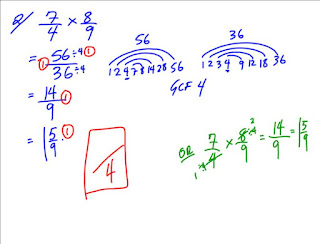 2/ 7/4 × 8/9
= 56÷4/36÷4 1 1
= 14/9 1
= 1 5/9 1
56
1 2 4 7 8 14 28 56
36
1 2 3 4 9 12 18 36
GCF 4
/4
OR 7/4 × 8/9 = 14/9 = 1 5/9
1 2